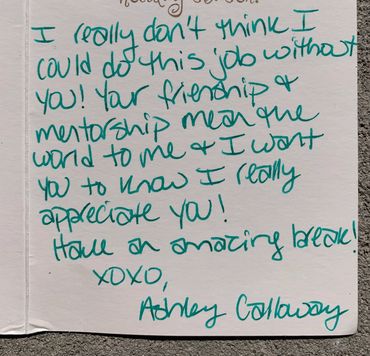 I really don't think I
could do this job without
you! Your friendship &
mentorship mean the
world to me & I want
you to know I really
appreciate you!
Have an amazing break!
XOXO,
Ashley Calloway